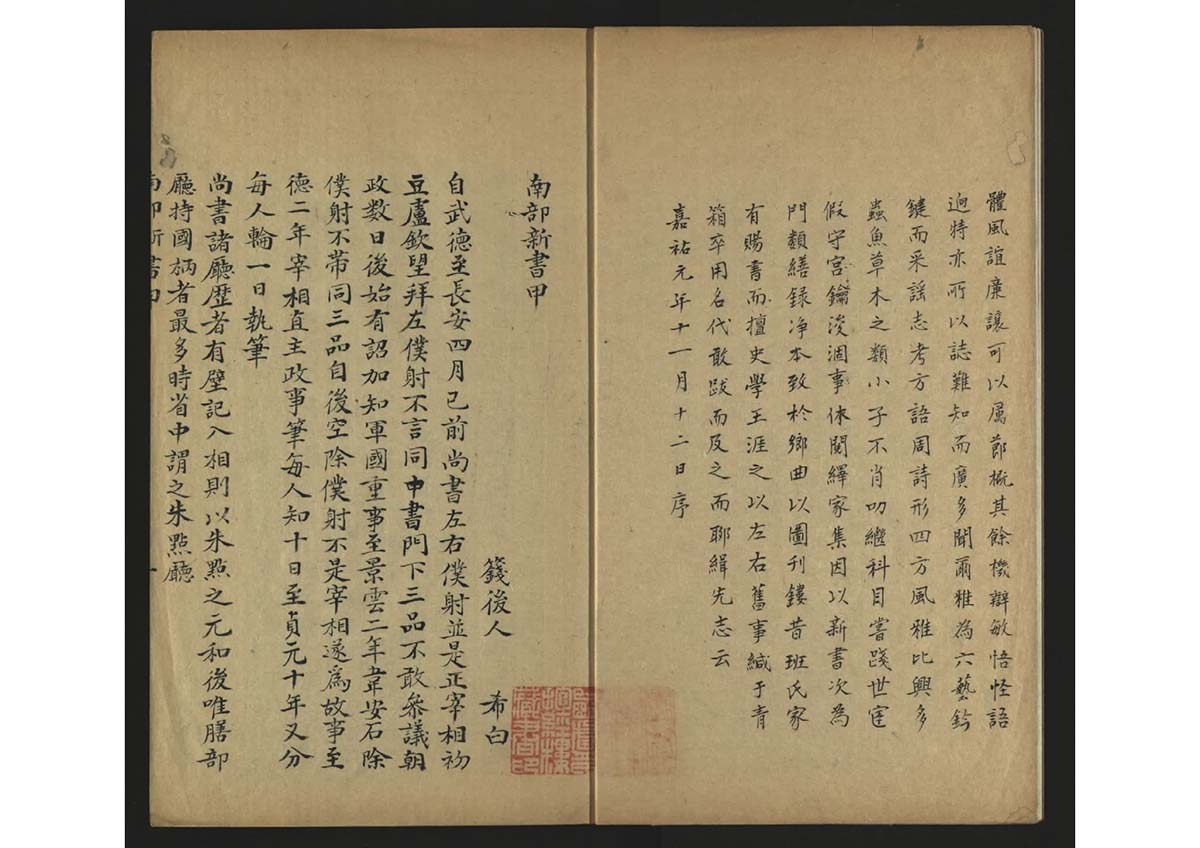 體風誼廉讓可以厲節槪其餘機辯敏悟怪語
迥特亦所以誌難知而廣多聞爾雅為六藝鈐
鍵而采謠志考方語周詩形四方風雅比興多
蟲魚草木之類小子不肖叨繼科目嘗踐世宦
假守宮鑰浚涸事休閱繹家集因以新書次為
門類繕録净本致於鄉曲以圖刊鏤昔班氏家
有賜書而擅史學王涯之以左右舊事緘于青
箱卒用名代敢跋而及之而聯緝先志云
嘉祐元年十一月十二日序
南部新書甲
籛後人 希白
自武德至長安四月已前尚書左右僕射並是正宰相初
豆盧欽望拜左僕射不言同中書門下三品不敢叅議朝
政数日後始有詔加知軍國重事至景雲二年韋安石除
僕射不帶同三品自後空除僕射不是宰相遂爲故事至
德二年宰相直主政事筆每人知十日至貞元十年又分
每人輪一日執筆
尚書諸廳歷者有壁記入相則以朱點之元和後唯膳部
廳持國柄者最多時省中謂之朱點廳
南部新書甲 一